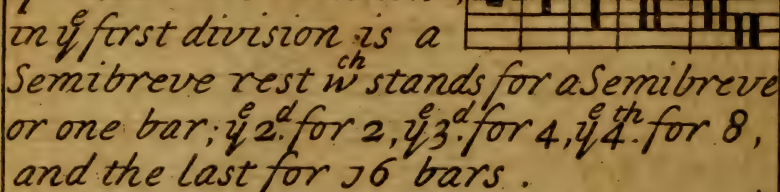 in yᵉ first division is a
Semibreve rest wᶜʰ stands for a Semibreve
or one bar; yᵉ 2.ᵈ for 2, yᵉ 3.ᵈ for 4, yᵉ 4.ᵗʰ for 8,
and the last for 16 bars.